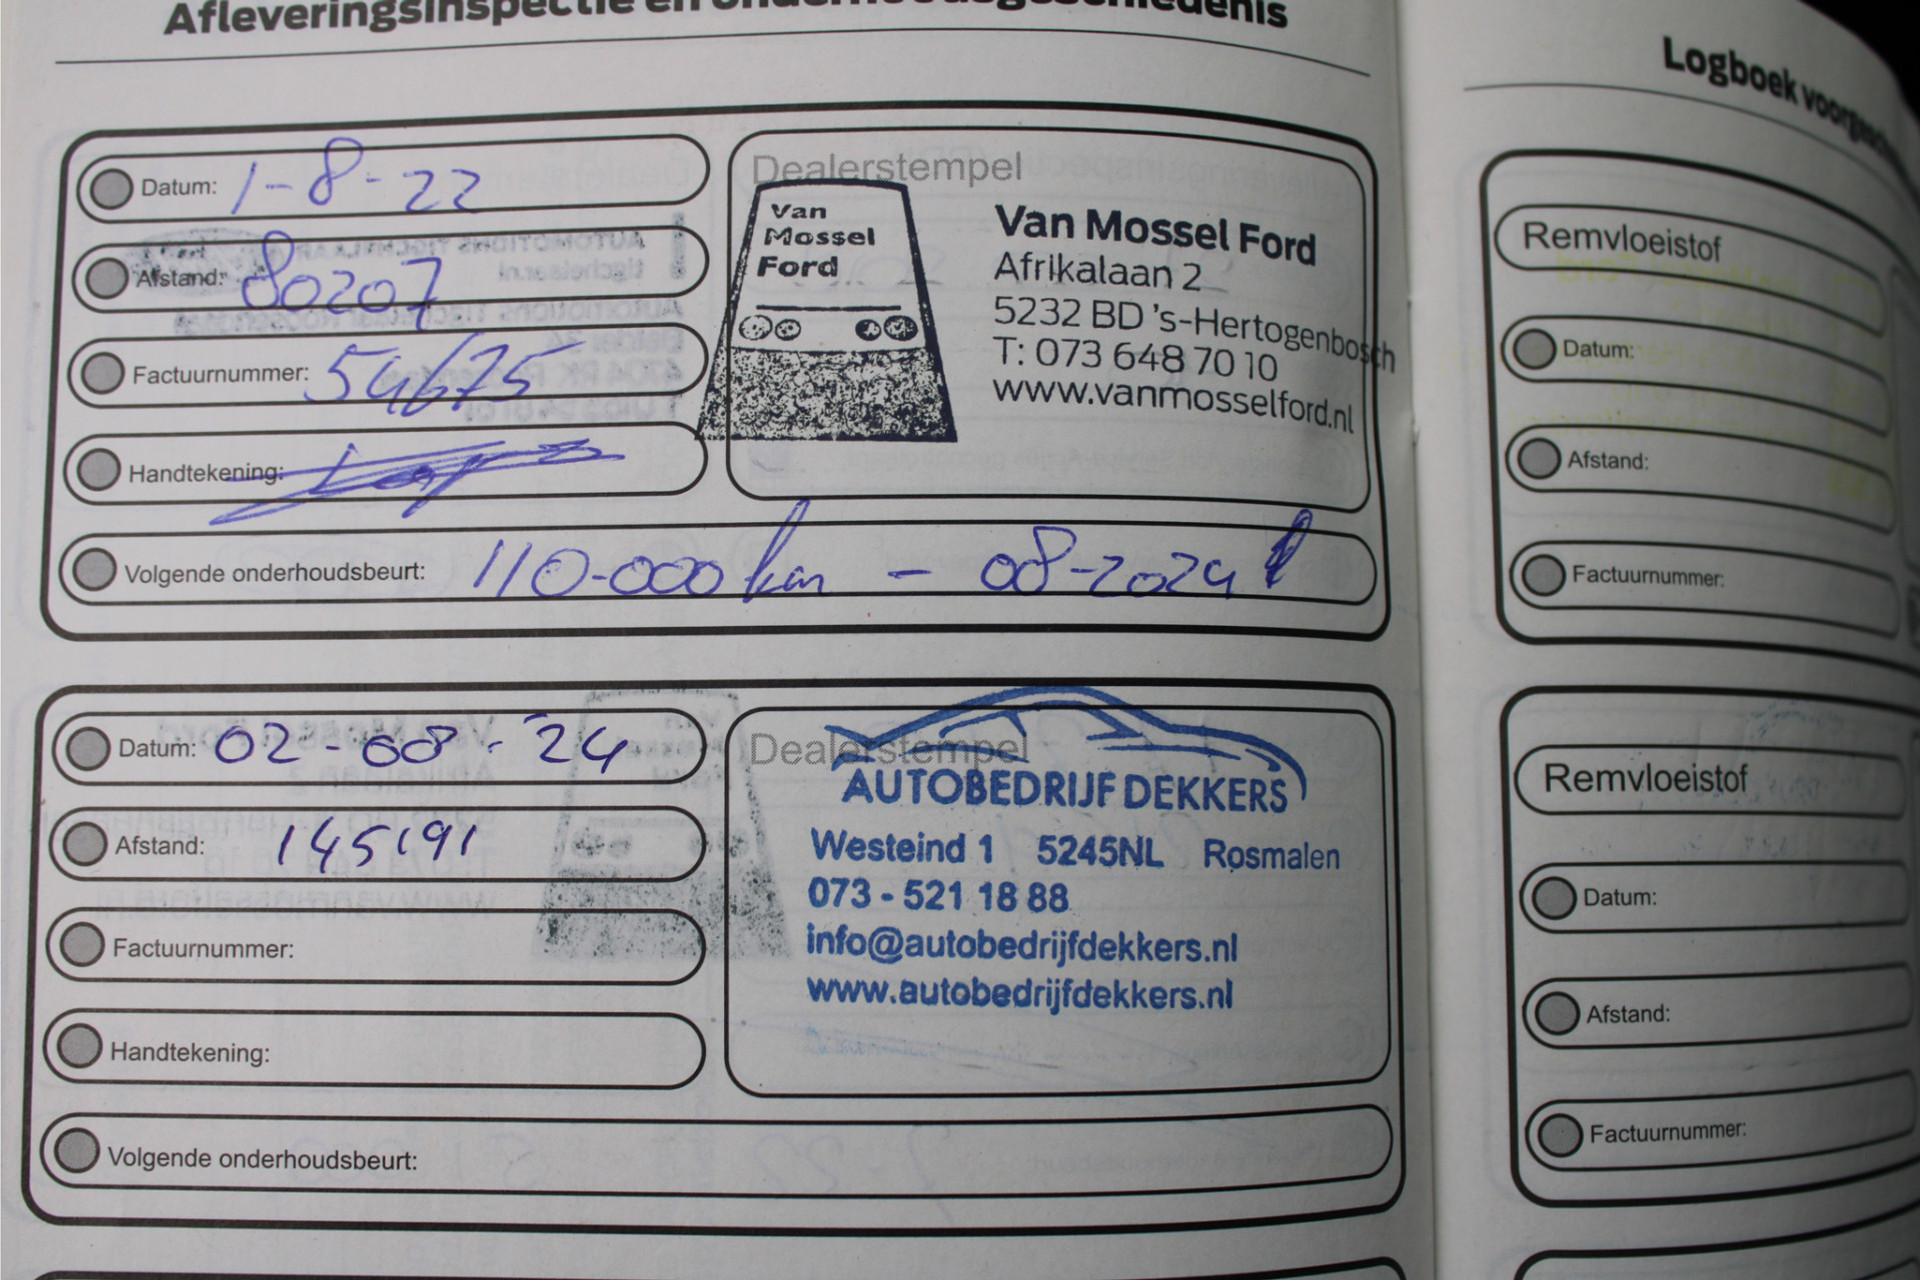 Afleveringsinspectie en onderhoudsgeschiedenis
Datum: 1-8-22
Afstand: 80207
Factuurnummer: 54675
Handtekening:
Dealerstempel
Van
Mossel
Ford
Van Mossel Ford
Afrikalaan 2
5232 BD 's-Hertogenbosch
T: 073 648 70 10
www.vanmosselford.nl
Volgende onderhoudsbeurt: 110-000 km - 08-2024
Datum: 02-08-24
Afstand: 145191
Factuurnummer:
Handtekening:
Dealerstempel
AUTOBEDRIJF DEKKERS
Westeind 1 5245NL Rosmalen
073 - 521 18 88
info@autobedrijfdekkers.nl
www.autobedrijfdekkers.nl
Volgende onderhoudsbeurt:
Logboek
Remvloeistof
Datum:
Afstand:
Factuurnummer:
Remvloeistof
Datum:
Afstand:
Factuurnummer: